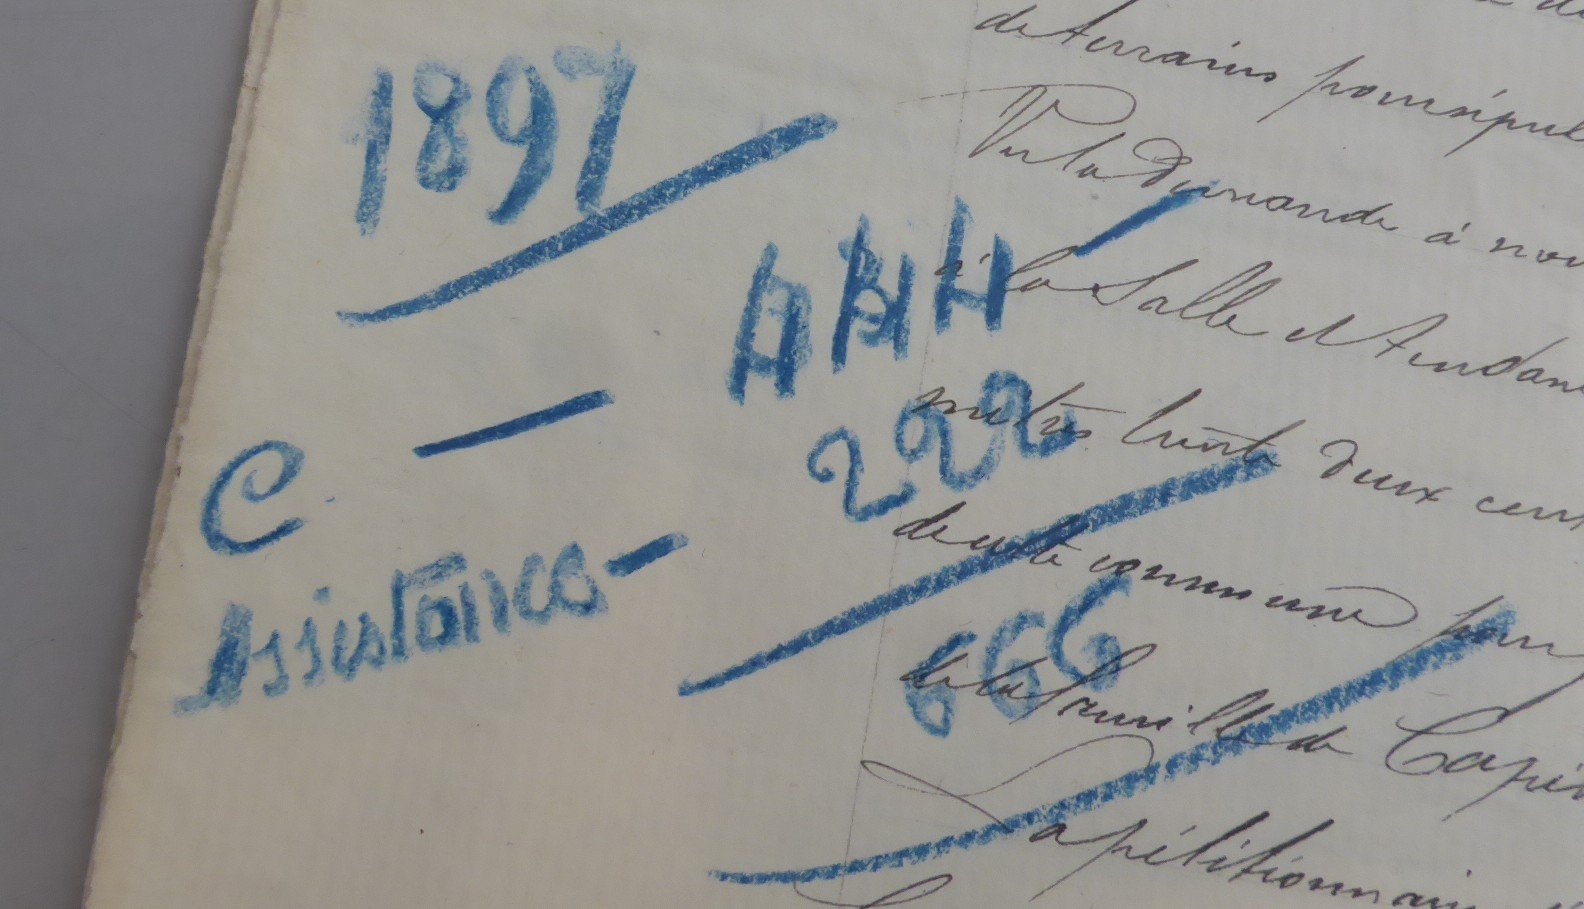 1897
C
Assistance -
444
222
666
de terrains pour sépul
Vu la Demande à nou
à la Salle et tendan
mètres trente deux cent
de cette commune pour
de la famille de
La pétitionnaire